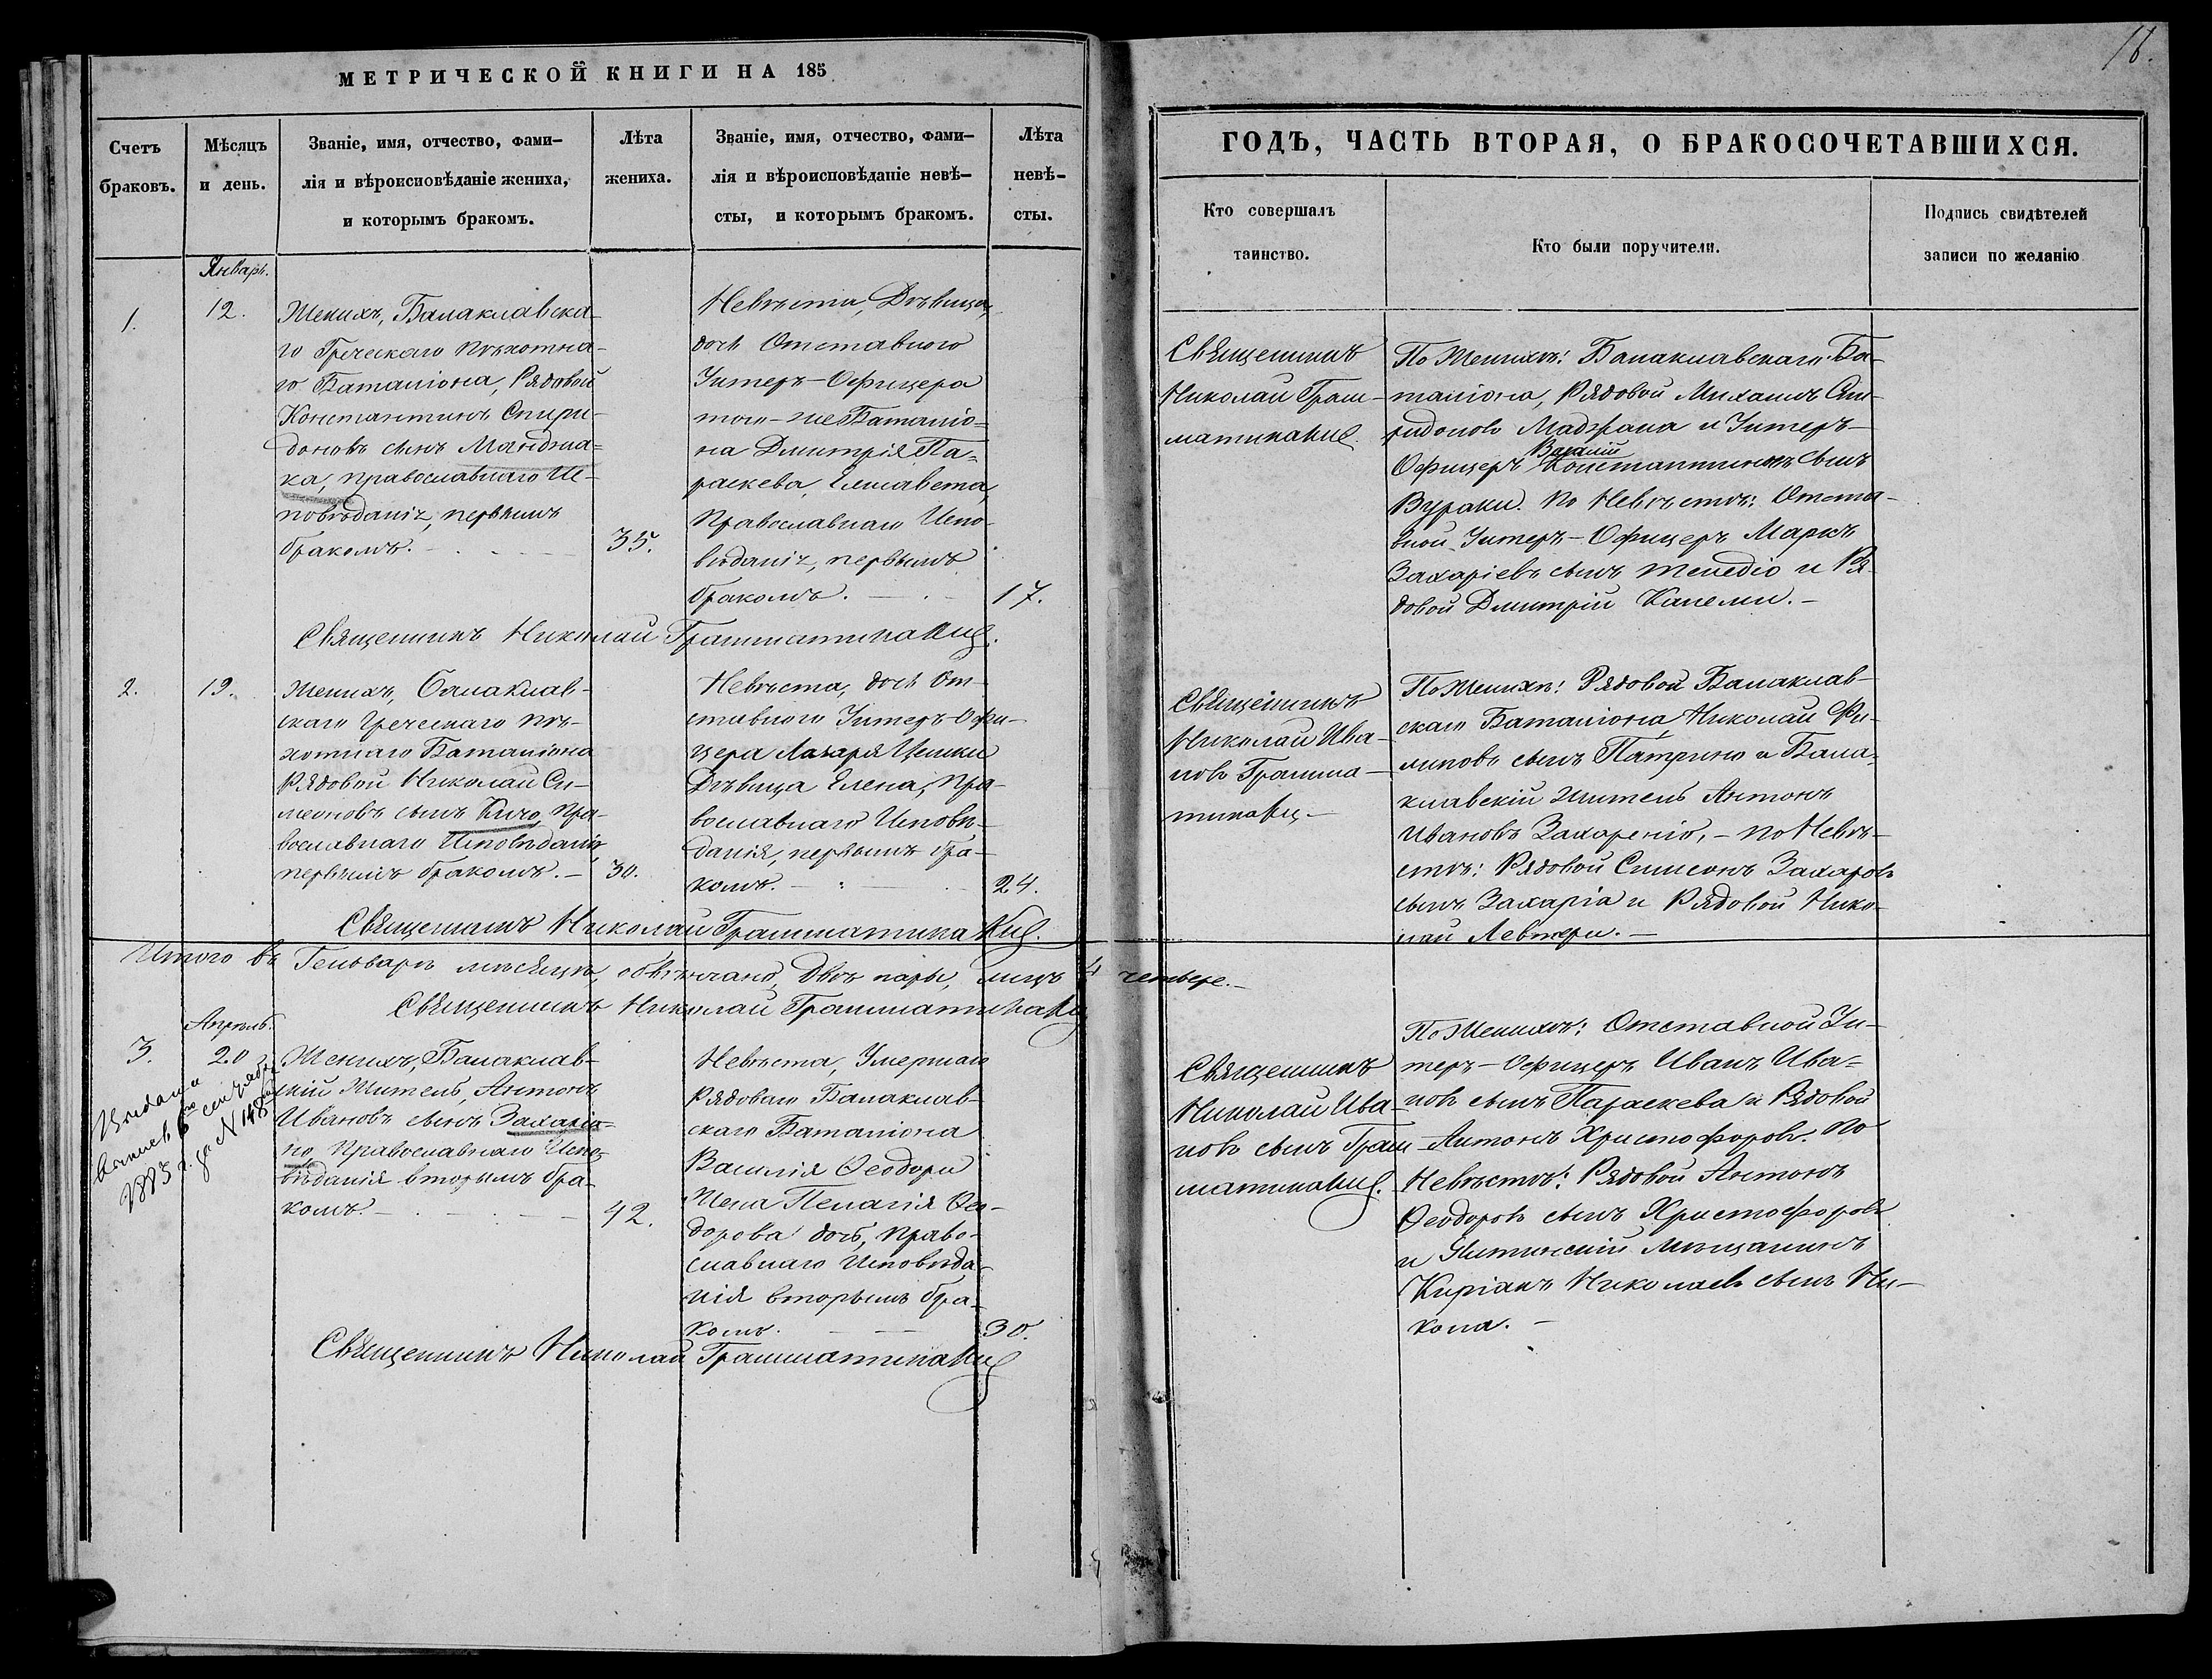 МЕТРИЧЕСКОЙ КНИГИ НА 185
Счетъ
браковъ.
Мѣсяцъ
и день.
Званіе, имя, отчество, фами–
лія и вѣроисповѣданіе жениха,
и которымъ бракомъ.
Лѣта
жениха.
Званіе, имя, отчество, фами–
лія и вѣроисповѣданіе невѣ–
сты, и которымъ бракомъ.
Лѣта
невѣ–
сты.
Январь.
1.
12.
Женихъ, Балаклавска–
го Греческаго пѣхотна–
го Баталіона, Рядовой
Константинъ Спири–
доновъ сынъ Манджа–
ка, православнаго Ис–
повѣданія, первымъ
бракомъ.
35.
Невѣста, Дѣвица,
дочь Отставного
Унтеръ–Офицера
того–же Баталіо–
на Дмитрія Па–
раскева, Елисавета,
Православнаго Испо–
вѣданія, первымъ
бракомъ.
17.
Священникъ Николай Грамматикаки.
2.
19.
Женихъ, Балаклав–
скаго Греческаго пѣ–
хотнаго Баталіона
Рядовой Николай Си–
меоновъ сынъ Кичо, Пра–
вославнаго Исповѣданія,
первымъ бракомъ.–
30.
Невѣста, дочь От–
ставного Унтеръ–Офи–
цера Лазаря Цешки
Дѣвица Елена, Пра–
вославнаго Исповѣ–
данія, первымъ бра–
комъ.
24.
Священникъ Николай Грамматикаки.
Итого въ Генварѣ мѣсяцѣ, обвѣнчано двѣ пары, лицъ 4 четыре.–
Священникъ Николай Грамматикаки
Апрѣль.
3.
20
Выдана
1883 г. за N 148
Женихъ, Балаклав–
скій Житель, Антонъ
Ивановъ сынъ Захаріа–
но, Православнаго Испо–
вѣданія вторымъ бра–
комъ.–
42.
Невѣста, Умершаго
Рядоваго Балаклав–
скаго Баталіона
Василія Ѳеодори
Жена Пелагія Ѳео–
дорова дочь, Право–
славнаго Исповѣда–
нія вторымъ бра–
комъ.
30.
Священникъ Николай Грамматикаки
16.
ГОДЪ, ЧАСТЬ ВТОРАЯ, О БРАКОСОЧЕТАВШИХСЯ.
Кто совершалъ
таинство.
Кто были поручители.
Подпись свидѣтелей
записи по желанію
Священникъ
Николай Грам–
матикаки.
По Женихѣ: Балаклавскаго Ба–
таліона, Рядовой Михаилъ Спи–
ридоновъ Маджака и Унтеръ–
Офицеръ Константинъ сынъ
Вураки. по Невѣстѣ: Отста–
вной Унтеръ–Офицеръ Маркъ
Захаріевъ сынъ Женедіо и Ря–
довой Дмитрій Капели.–
Священникъ
Николай Ива–
новъ Грамма–
тикаки–
По Женихѣ: Рядовой Балаклав–
скаго Баталіона Николай Фи–
липовъ сынъ Патрино и Бала–
клавскій житель Антонъ
Ивановъ Захареніо,– по Невѣ–
стѣ: Рядовой Симеонъ Захаровъ
сынъ Захаріа и Рядовой Нико–
лай Левтери.–
Священникъ
Николай Ива–
новъ сынъ Грам–
матикаки.
По Женихѣ: Отставной Ун–
теръ–Офицеръ Иванъ Ива–
новъ сынъ Параскева и Рядовой
Антонъ Христофоровъ. по
Невѣстѣ: Рядовой Антонъ
Ѳеодоровъ сынъ Христофоровъ
и Ялтинскій Мѣщанинъ
Киріакъ Николаевъ сынъ Ни–
кола.–